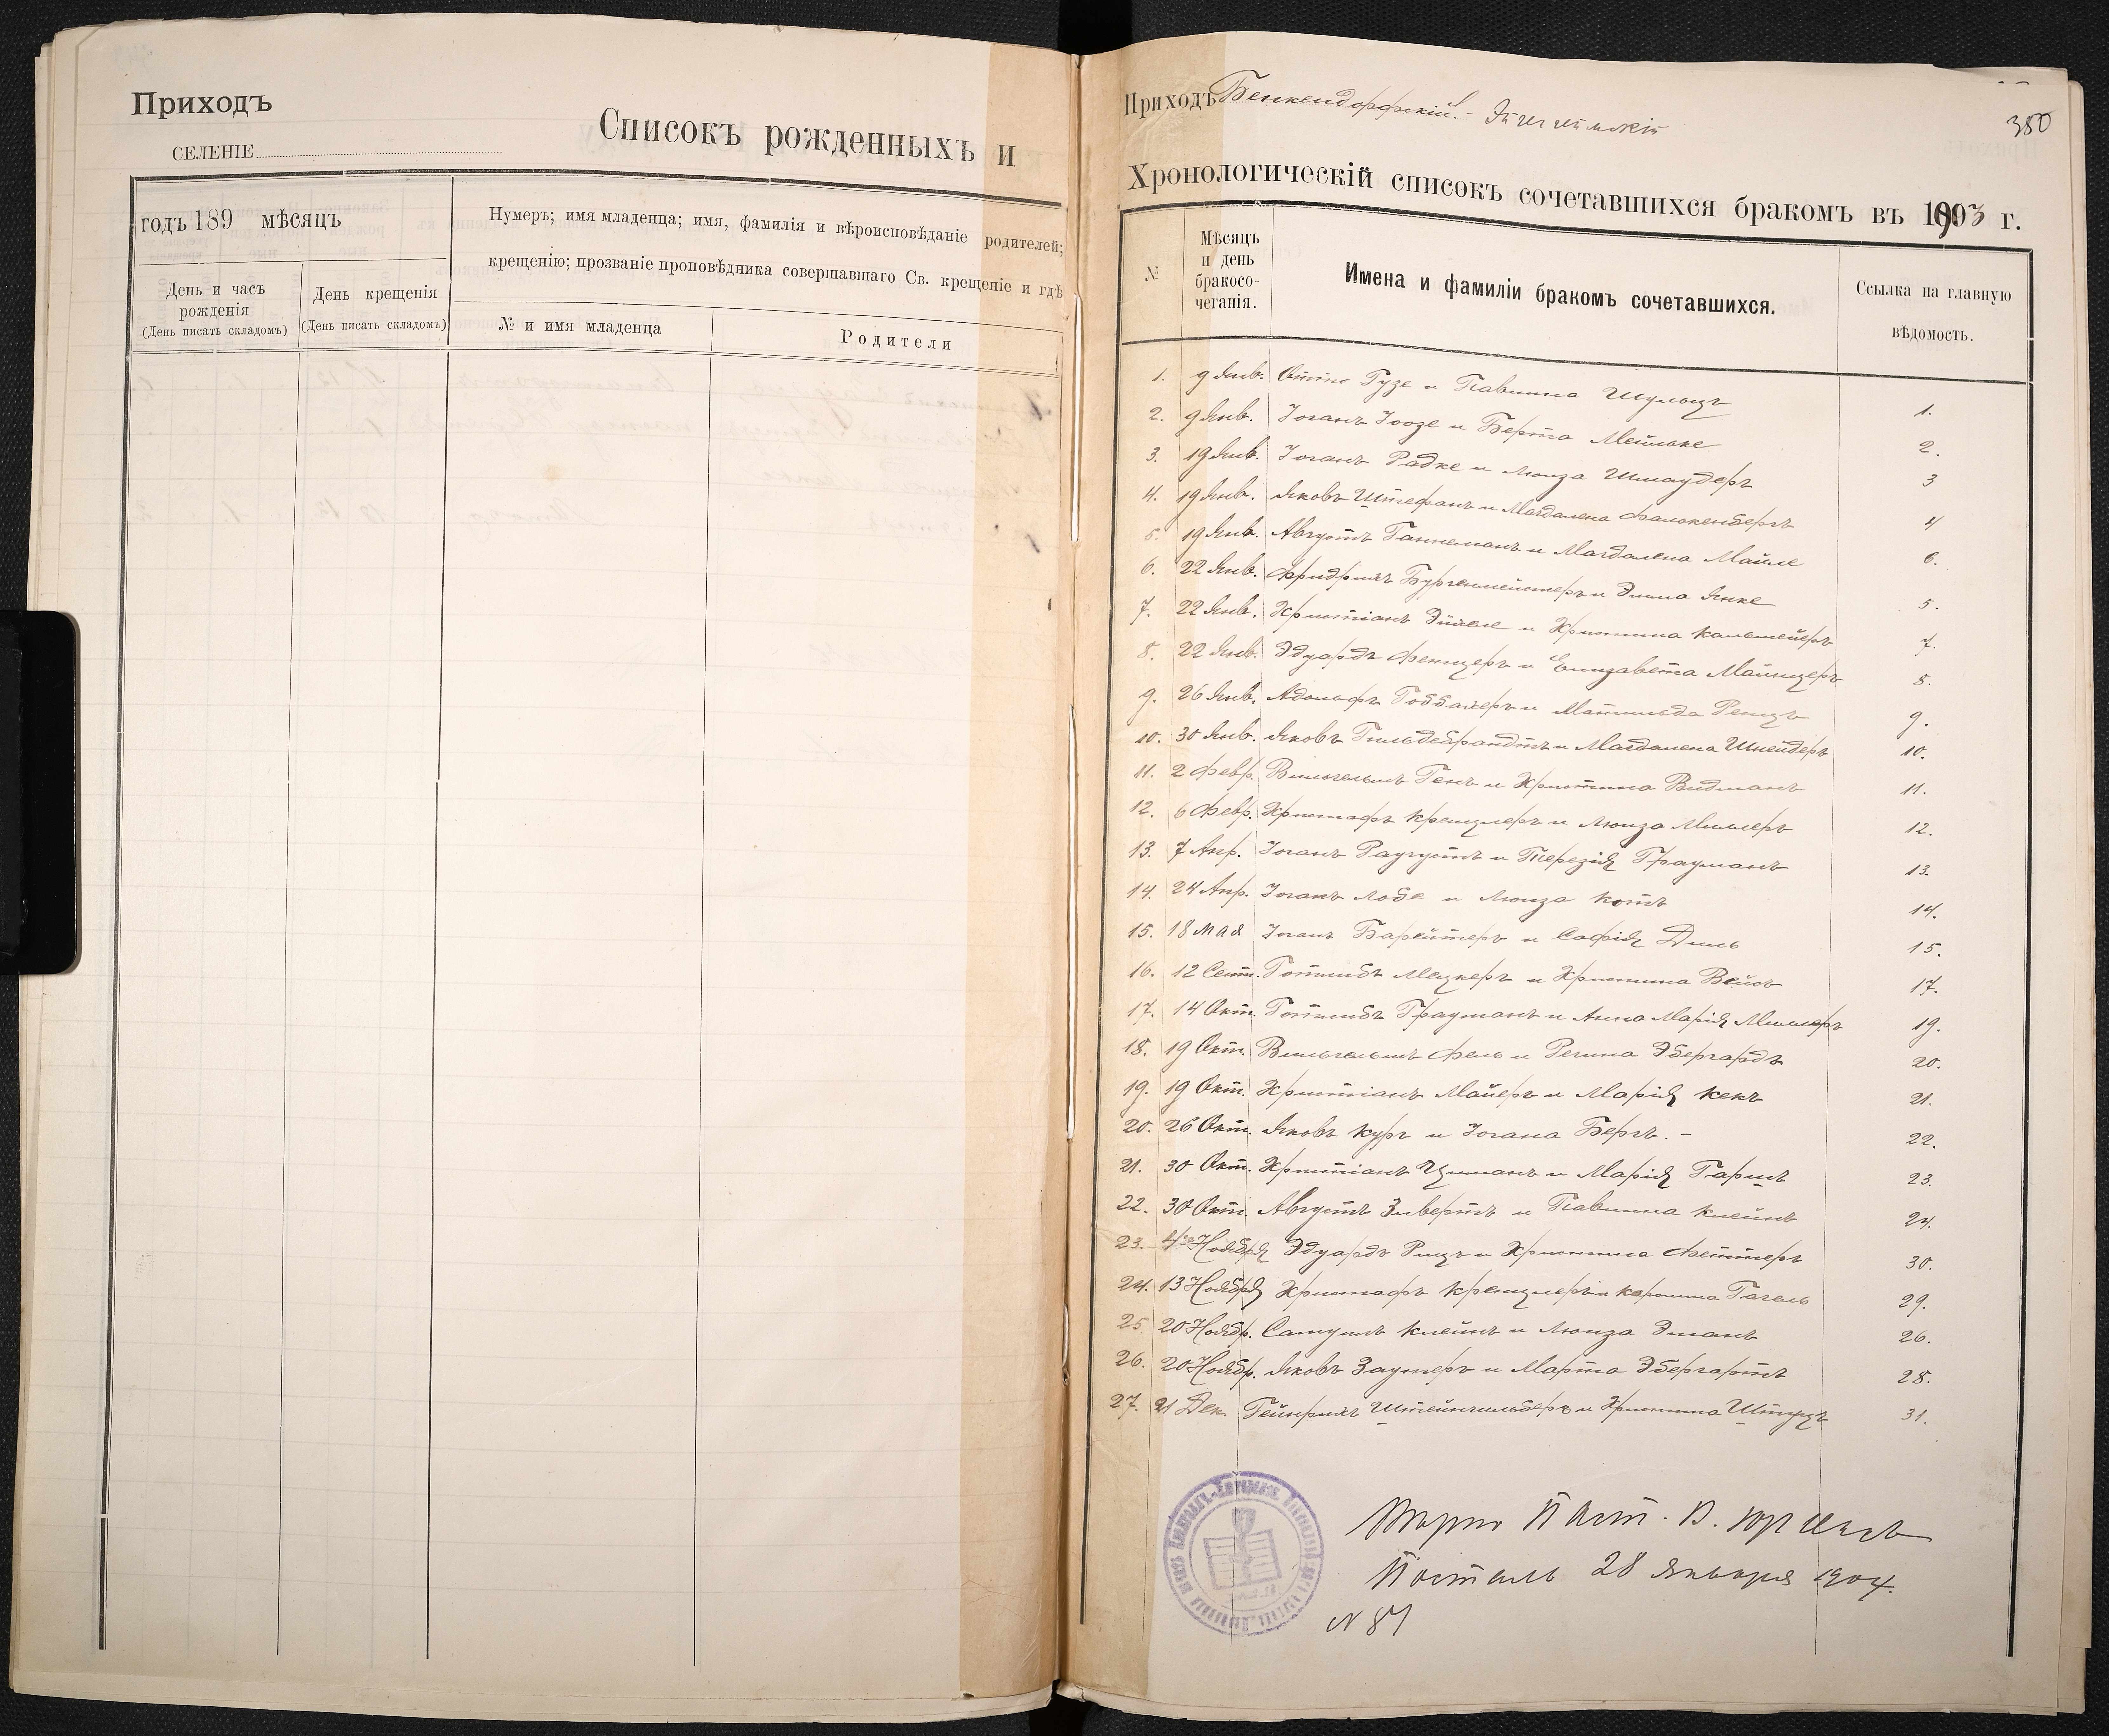 Приходъ
СЕЛЕНІЕ
Списокъ рожденныхъ и
годъ 189 мѣсяцъ
Нумеръ; имя младенца; имя, фамилія и вѣроисповѣданіе родителей;
крещенію; прозваніе проповѣдника совершавшаго Св. крещеніе и гдѣ
День и часъ
рожденія
(День писать складомъ)
День крещенія
(День писать складомъ)
№ и имя младенца
Родители
Приходъ Бенкендорфскій.-
380
Хронологическій списокъ сочетавшихся бракомъ въ 1903 г.
№
Мѣсяцъ
и день
бракосо-
четанія.
Имена и фамиліи бракомъ сочетавшихся.
Ссылка на главную
вѣдомость.
1. 9 Янв. Отто Гузе и Павлина Шульцъ 1.
2. 9 Янв. Іоганъ Іоозе и Берта Мейльке 2.
3. 19 Янв. Іоганъ Радке и Люиза Шнаудеръ 3
4. 19 Янв. Яковъ Штефанъ и Магдалена Фалькенбергъ 4
5. 19 Янв. Августъ Ганеманъ и Магдалена Майле 6.
6. 22 Янв. Фридрихъ Бургемейстеръ и Эмма Янке 5.
7. 22 Янв. Христіанъ и Христина Кальмейеръ 7.
8. 22 Янв. Эдуардъ Фенцеръ и Елизавета Майнцеръ 8.
9. 26 Янв. Адольфъ и Матильда Ренцъ 9.
10. 30 Янв. Яковъ Гильдебрандтъ и Магдалена Шнейдеръ 10.
11. 2 Февр. Вильгельмъ Генъ и Христина Видманъ 11.
12. 6 Февр. Христофъ Кренцлеръ и Люиза Миллеръ 12.
13. 7 Апр. Іоганъ Раугустъ и Терезія Трауманъ 13.
14. 24 Апр. Іоганъ Лобе и Люиза Котъ 14.
15. 18 Мая Іоганъ Барейтеръ и Софія Диль 15.
16. 12 Сент. Готлибъ Мецкеръ и Христина Вейсъ 17.
17. 14 Окт. Готлибъ Трауманъ и Анна Марія Миллеръ 19.
18. 19 Окт. Вильгельмъ Фель и Регина Эбергардъ 20.
19. 19 Окт. Христіанъ Майеръ и Марія Кекъ 21.
20. 26 Окт. Яковъ Куръ и Іогана Бергъ. - 22.
21. 30 Окт. Христіанъ Циманъ и Марія Гаришъ 23.
22. 30 Окт. Августъ Зивертъ и Павлина Клейнъ 24.
23. 4го Ноября Эдуардъ Рицъ и Христина Феттеръ 30.
24. 13 Ноября Христофъ Кренцлеръ и Каролина Гагель 29.
25. 20 Ноябр. Самуилъ Клейнъ и Люиза Эманъ 26.
26. 20 Ноябр. Яковъ Заутеръ и Марта Эбергартъ 28.
27. 21 Дек. Гейнрихъ Штейнгильберъ и Христина Штуцъ 31.
Вѣрно Паст.
Постталь 28 Января 1904.
N 81